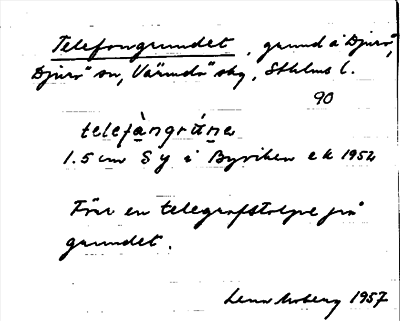 Telefongrundet, grund å Djurö,
Djurö sn, Värmdö skg, Sthlms l.
90
telefångrúna
1.5 cm S y i Byviken ek 1952
Förr en telegrafstolpe på
grundet.
Lena Moberg 1957